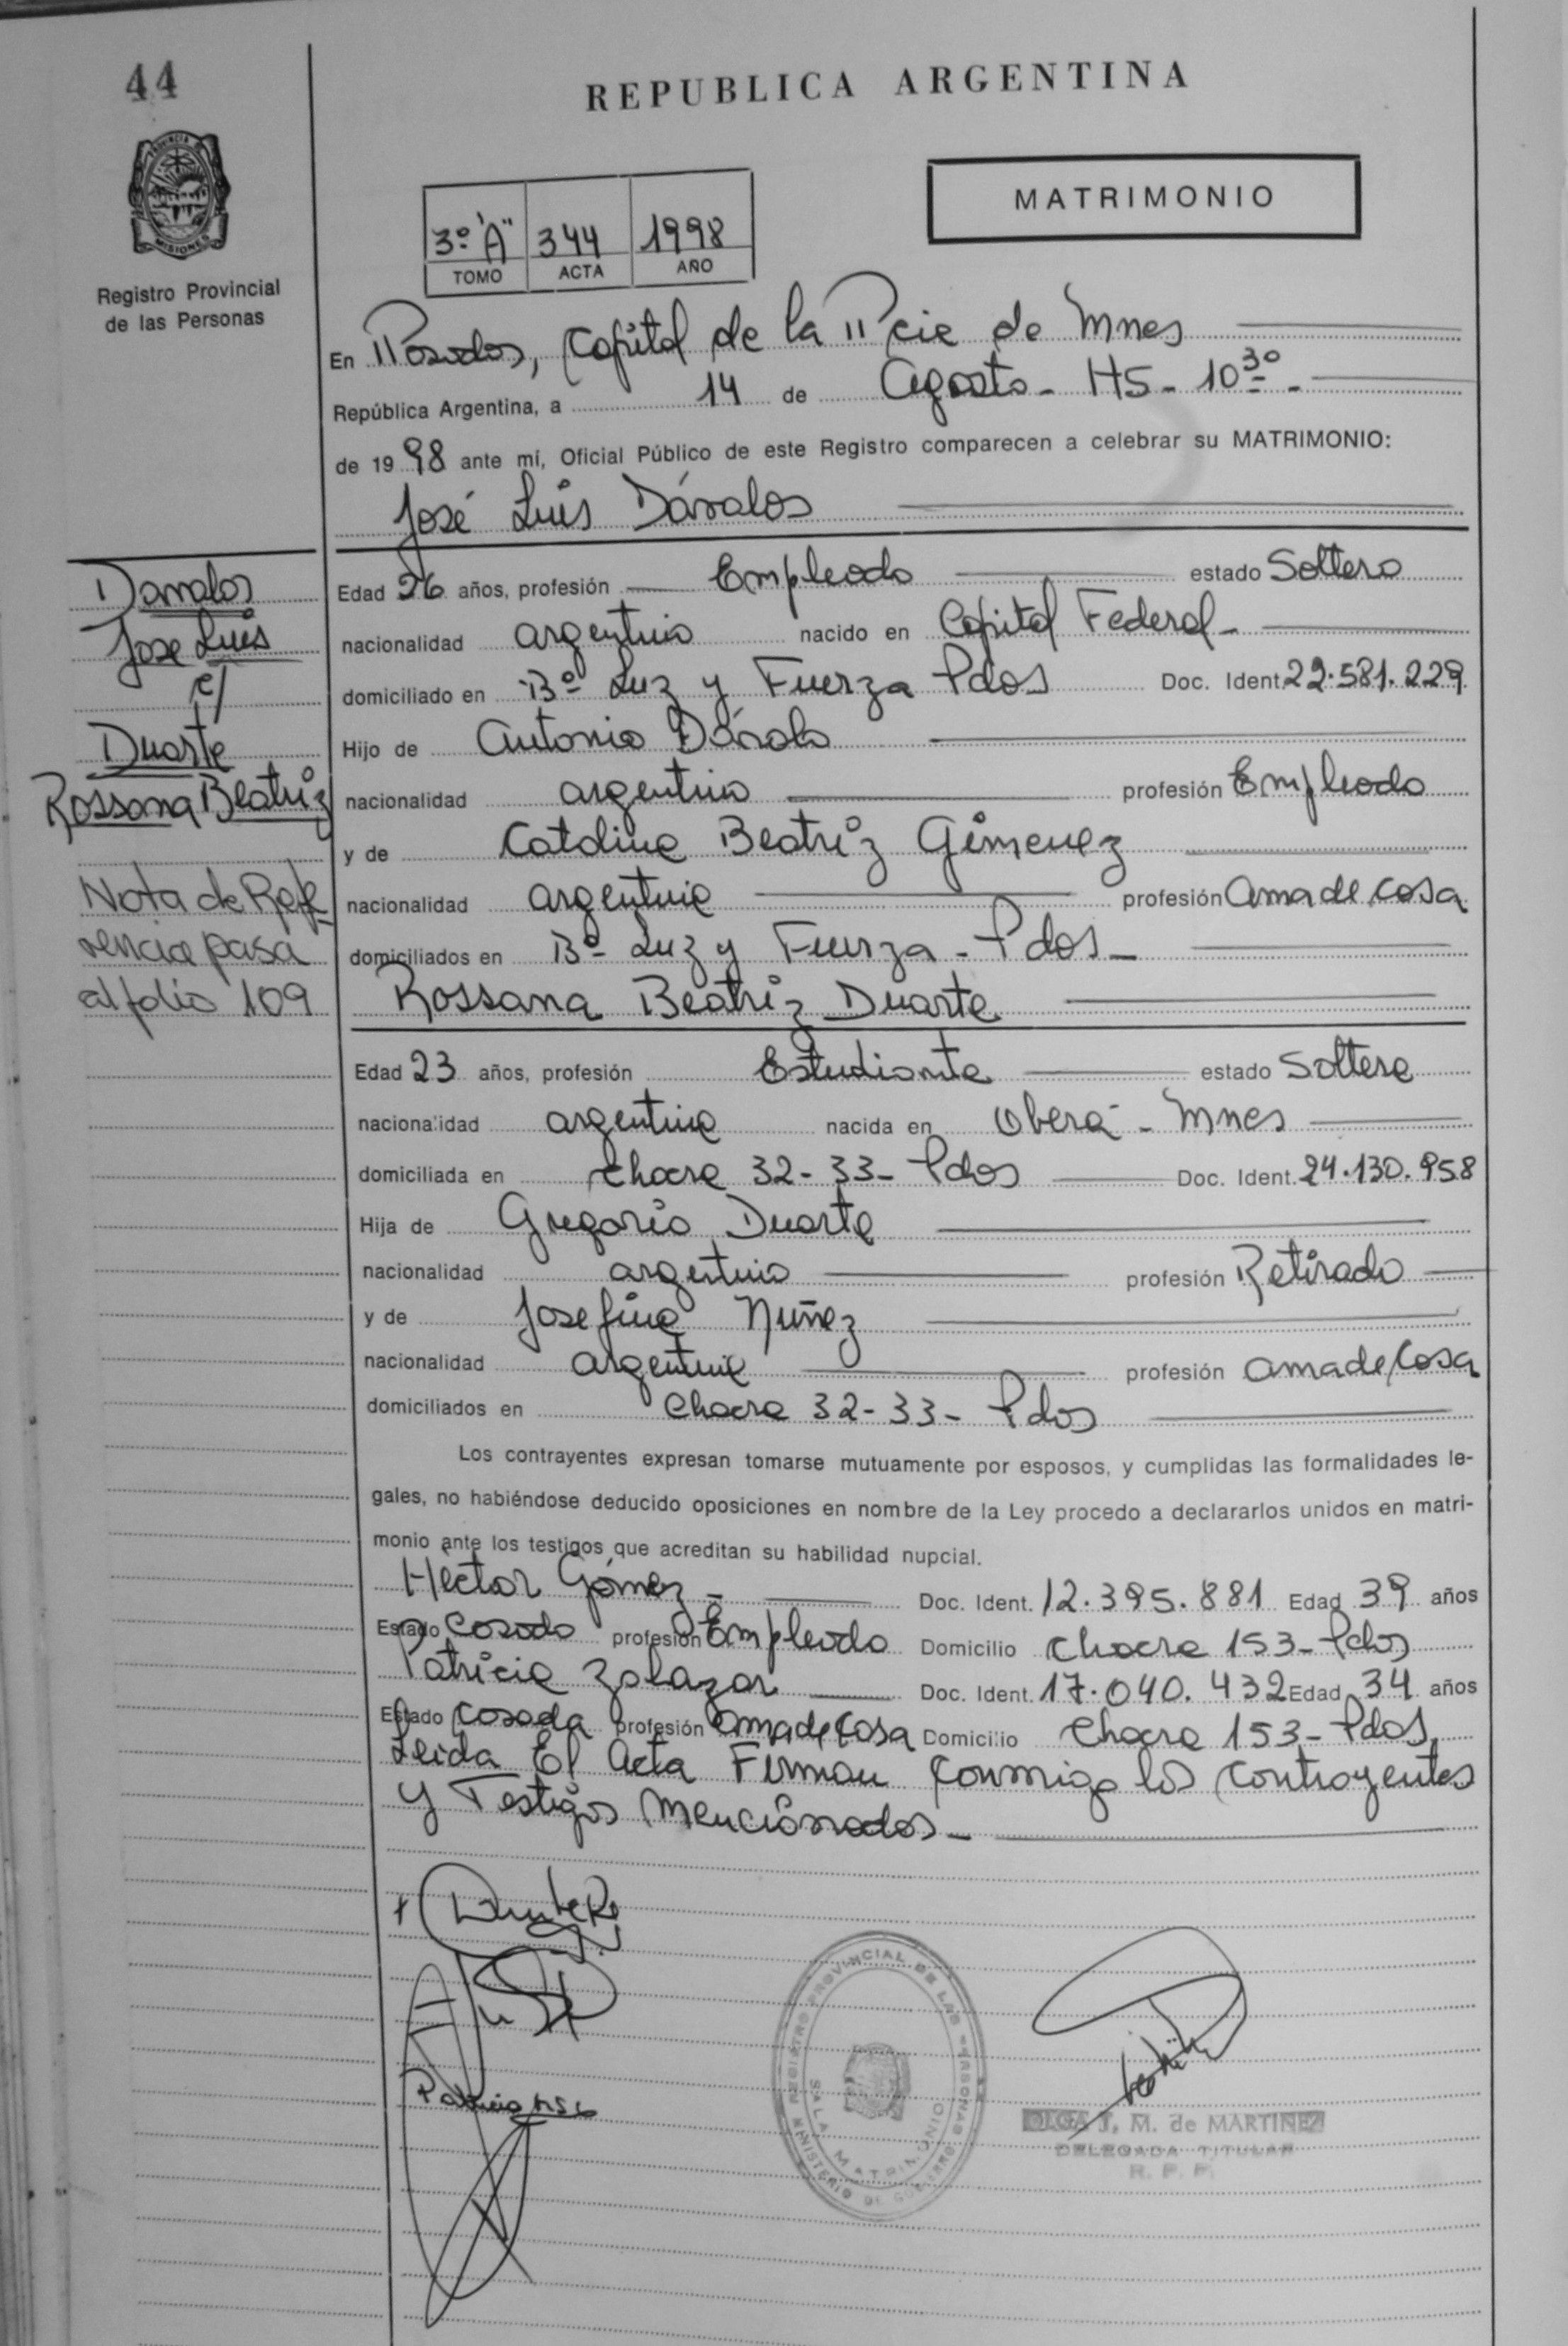 44
REPUBLICA ARGENTINA
MATRIMONIO
PROVINCIA DE
MISIONES
Registro Provincial
de las Personas
3º "A" 344 1998
TOMO ACTA AÑO
En Posadas, Capital de la Pcia de Mnes
República Argentina, a 14 de Agosto - HS - 10 30 -
de 19 98 ante mí, Oficial Público de este Registro comparecen a celebrar su MATRIMONIO:
José Luis Dávalos
Davalos
Jose Luis
c/
Duarte
Rossana Beatriz
Nota de Refe
rencia pasa
al folio 109
Edad 26 años, profesión Empleado estado Soltero
nacionalidad argentino nacido en Capital Federal -
domiciliado en Bº Luz y Fuerza Pdas Doc. Ident. 22.581.229
Hijo de Antonio Dávalo
nacionalidad argentino profesión Empleado
y de Catalina Beatriz Gimenez
nacionalidad argentina profesión ama de casa
domiciliados en Bº Luz y Fuerza - Pdas -
Rossana Beatriz Duarte
Edad 23 años, profesión Estudiante estado Soltera
nacionalidad argentina nacida en Oberá - Mnes
domiciliada en Chacra 32-33- Pdas Doc. Ident. 24.130.958
Hija de Gregorio Duarte
nacionalidad argentino profesión Retirado
y de Josefina Nuñez
nacionalidad argentina profesión ama de casa
domiciliados en Chacra 32-33- Pdas
Los contrayentes expresan tomarse mutuamente por esposos, y cumplidas las formalidades le-
gales, no habiéndose deducido oposiciones en nombre de la Ley procedo a declararlos unidos en matri-
monio ante los testigos que acreditan su habilidad nupcial.
Héctor Gómez - Doc. Ident. 12.395.881 Edad 39 años
Estado Casado profesión Empleado Domicilio Chacra 153- Pdas
Patricia Zalazar Doc. Ident. 17.040.432 Edad 34 años
Estado Casada profesión ama de casa Domicilio Chacra 153- Pdas
Leida El Acta Firman Conmigo los Contrayentes
y Testigos Mencionados -
Duarte R
REGISTRO PROVINCIAL DE LAS PERSONAS
MINISTERIO DE GOBIERNO
SALA MATRIMONIO
OLGA J. M. de MARTINEZ
DELEGADA TITULAR
R. P. P.